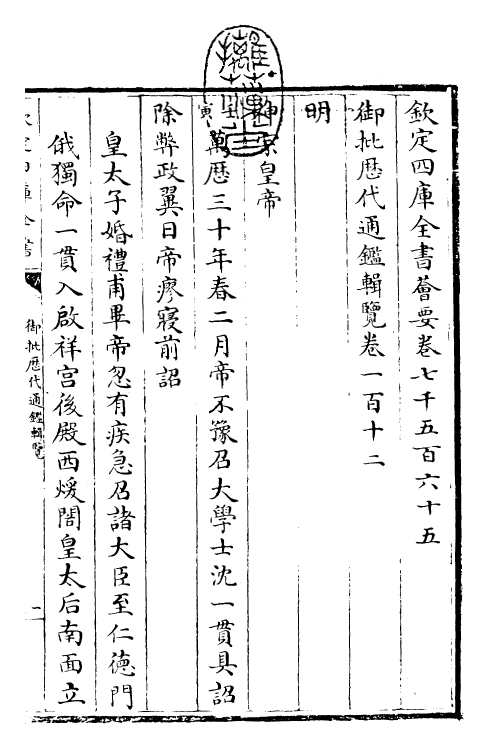 欽定四庫全書薈要卷七千五百六十五
御批歴代通鑑輯覽卷一百十二
明
神宗皇帝
壬寅萬歴三十年春二月帝不豫召大學士沈一貫具詔
除弊政翼日帝瘳寢前詔
皇太子婚禮甫畢帝忽有疾急召諸大臣至仁徳門
俄獨命一貫入啟祥宫後殿西煖閣皇太后南面立
欽定四庫全書
御批歴代通鑑輯覽